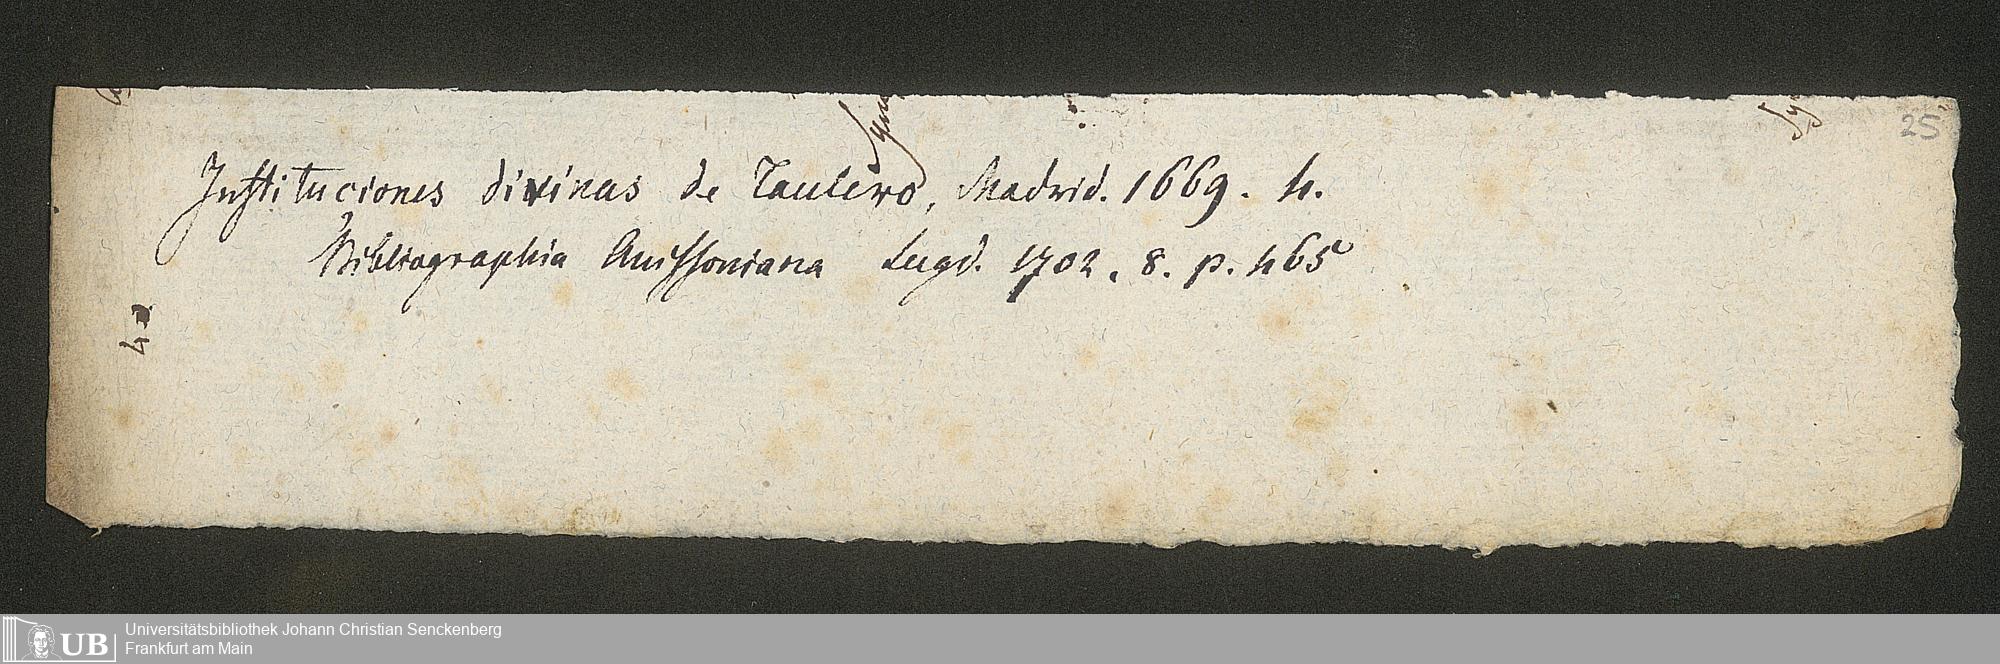 25
Instituciones divinas de Taulero, Madrid. 1669. 4.
Bibliographia Anissoniana Lugd. 1702. 8. p. 465
UB
Universitätsbibliothek Johann Christian Senckenberg
Frankfurt am Main